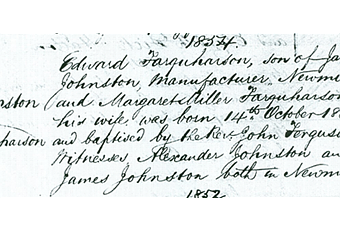 1854
Edward Farquharson, son of Ja
Johnston, Manufacturer, Newmi
nston and Margaret Miller Farquharson
his wife was born 14th October 18
harson and baptised by the Rev. John Ferguso
Witnesses Alexander Johnston an
James Johnston both in Newm
1852